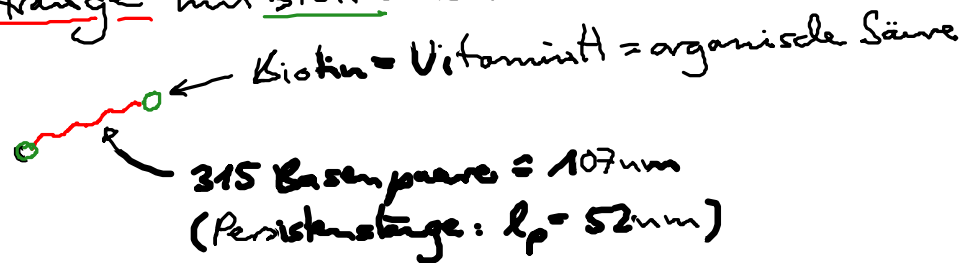 mit
Biotin = VitaminH = organische Säure
315 Basenpaare ≙ 107nm
(Persistenzlänge: lp = 52nm)